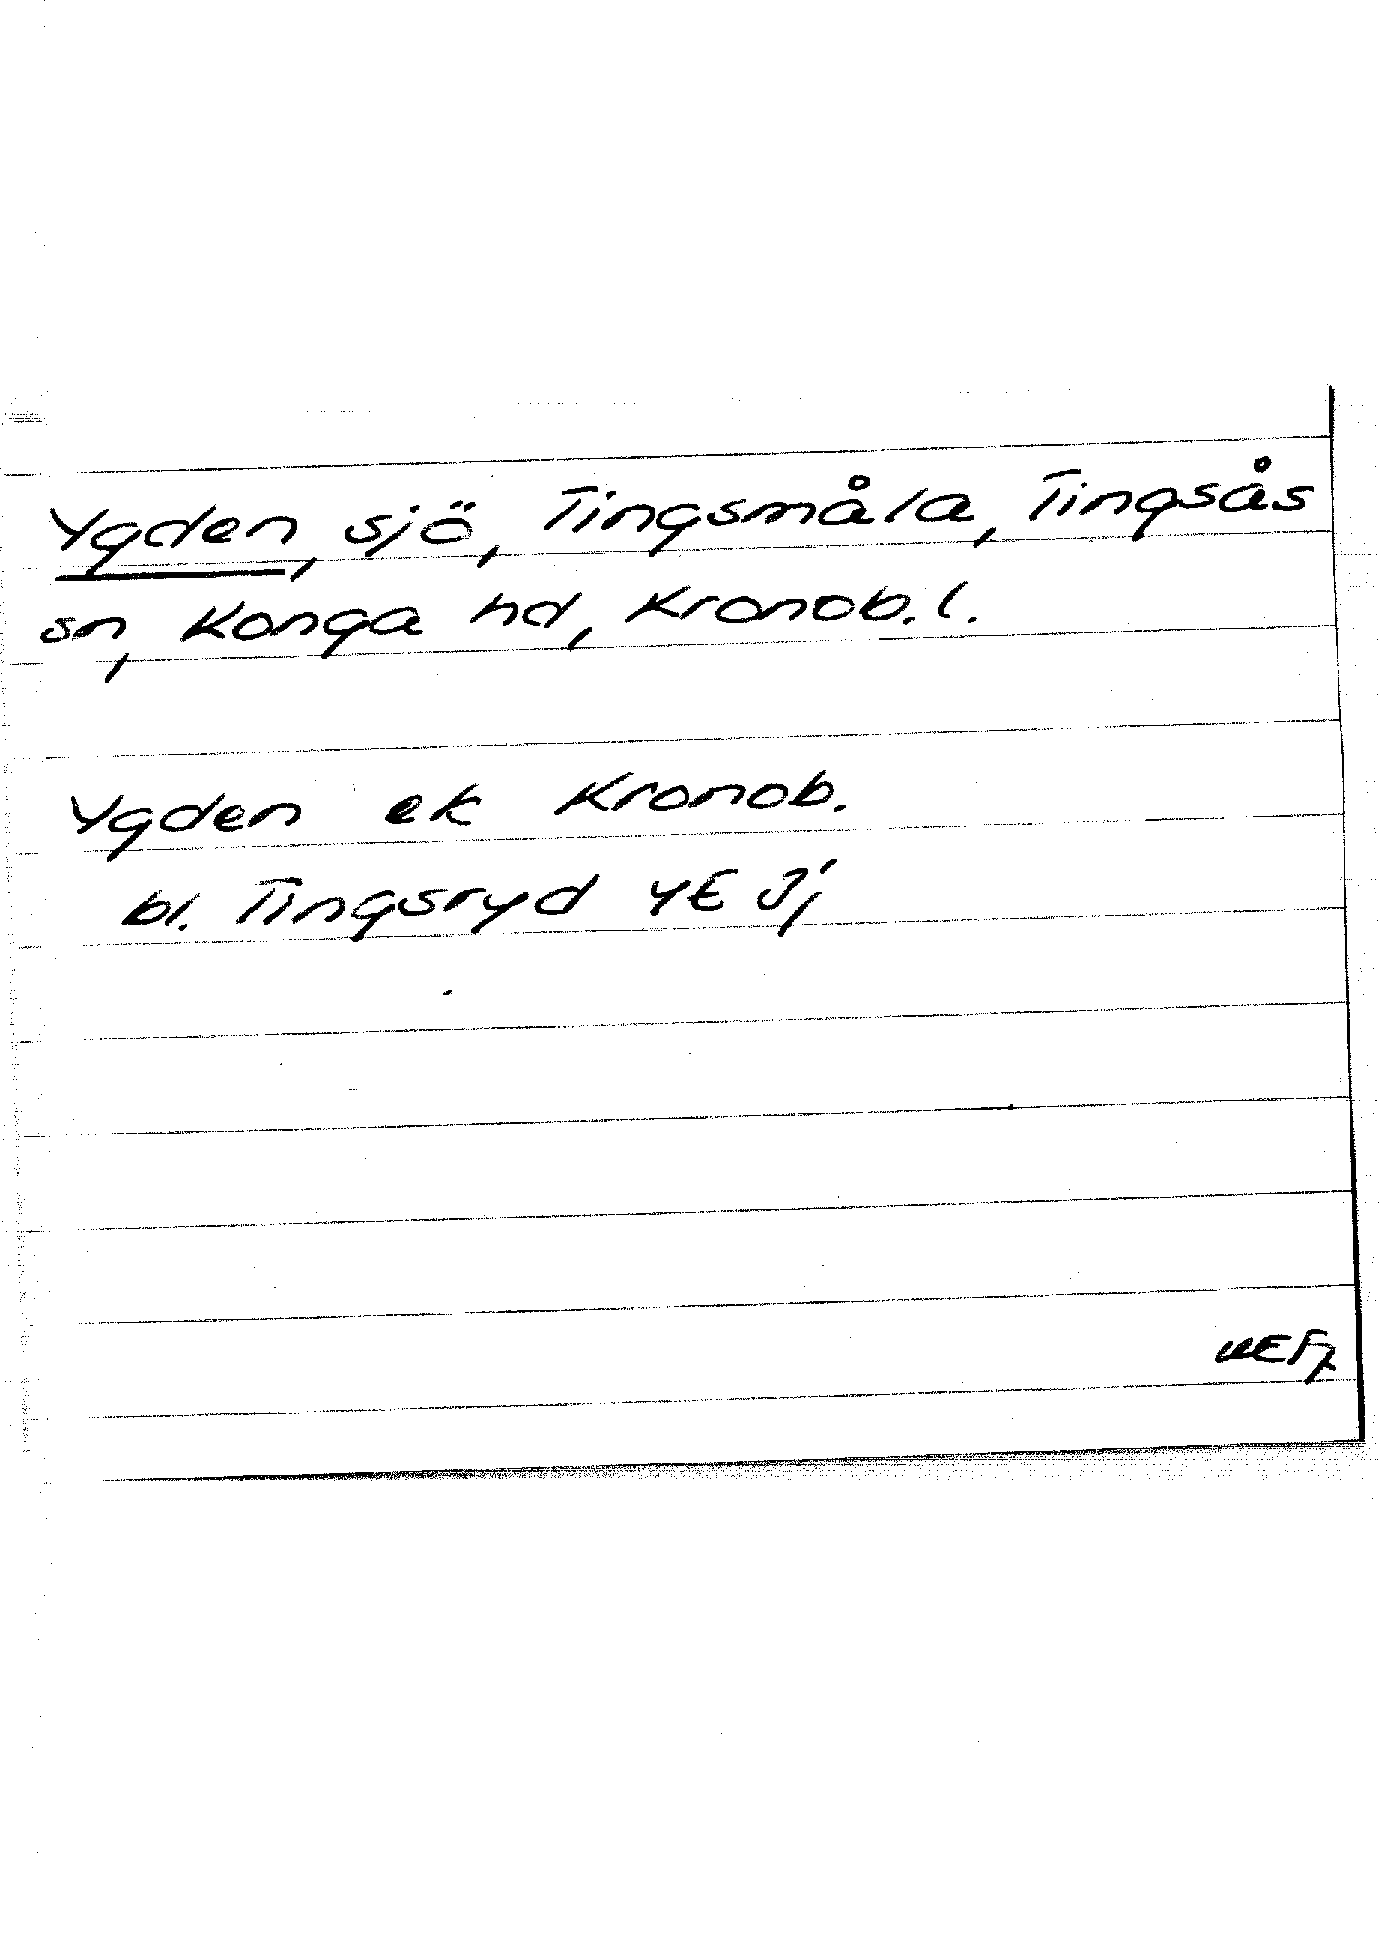 Ygden, sjö, Tingsmåla, Tingsås
sn, Konga hd, Kronob. l.
Ygden ek Kronob.
bl. Tingsryd 4E